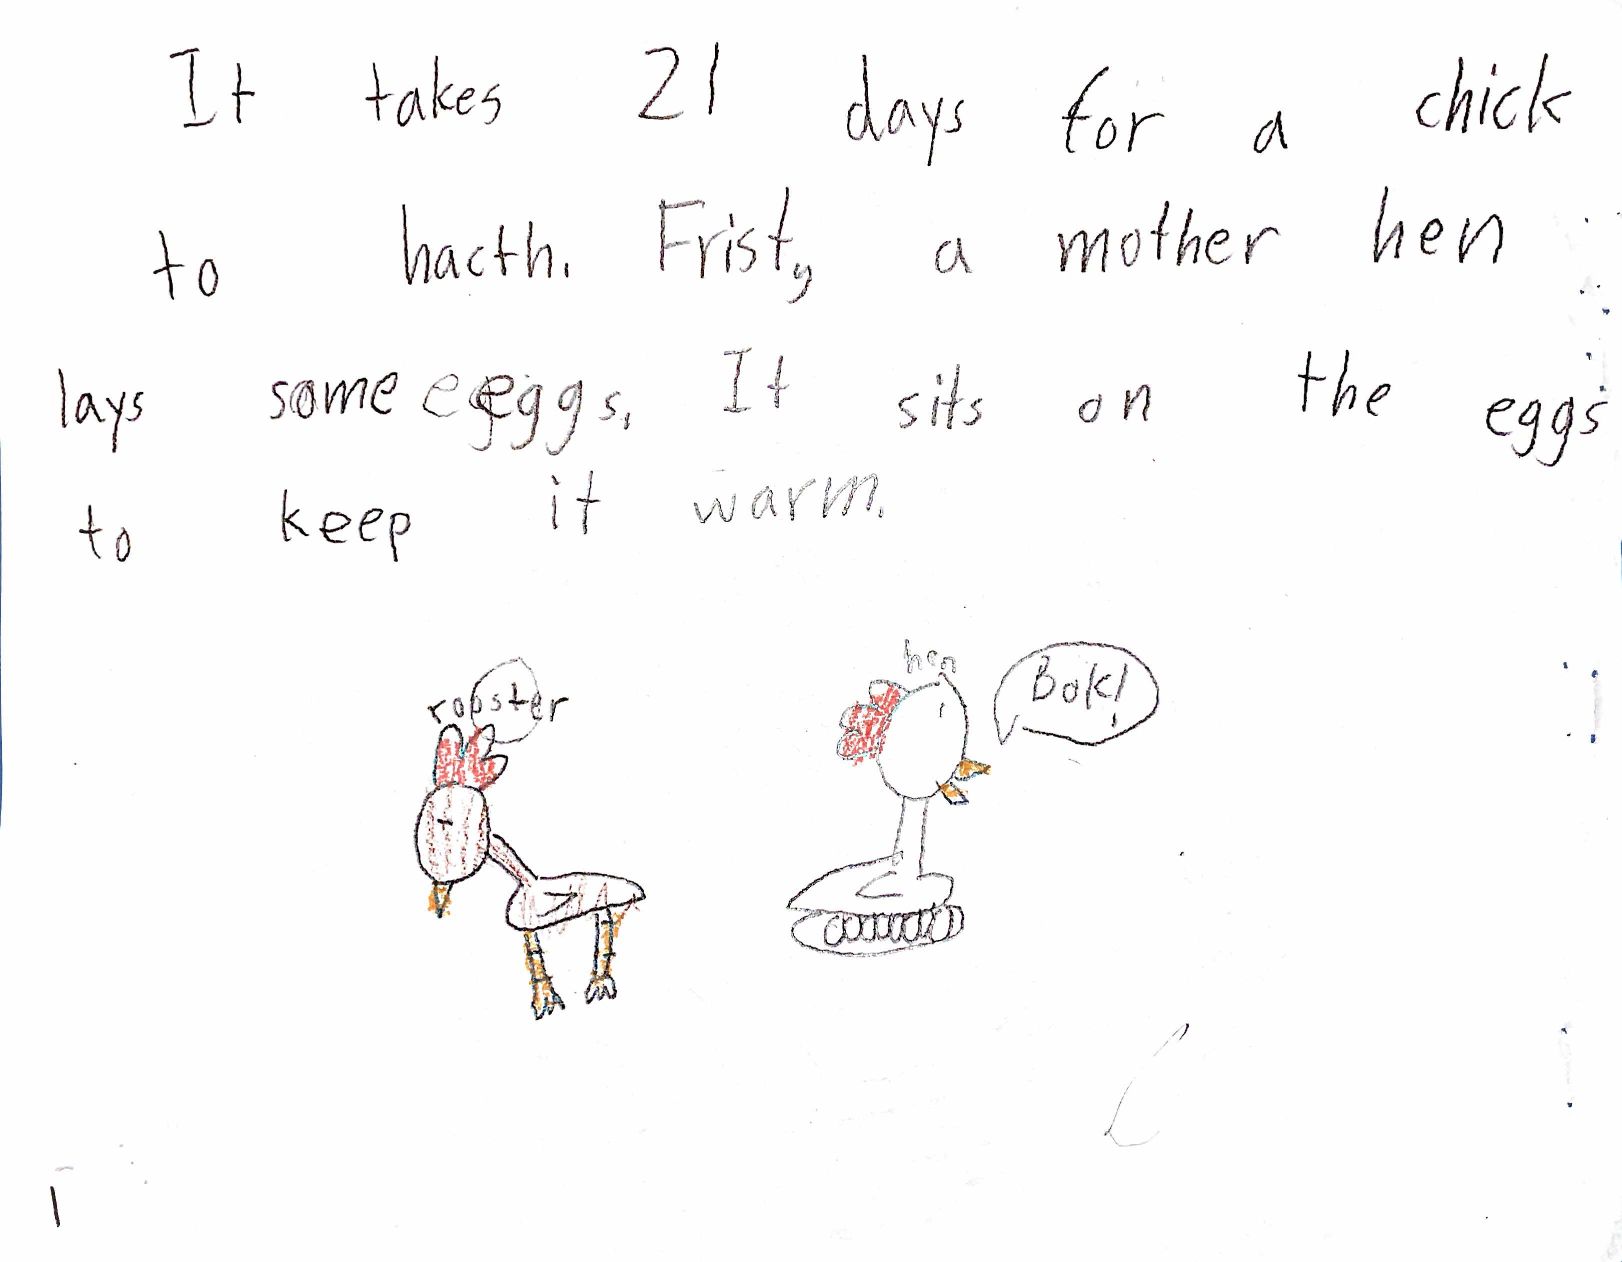 It takes 21 days for a chick
to hacth. Frist, a mother hen
lays some eeggs. It sits on the eggs
to keep it warm.
rooster
hen
Bok!
1